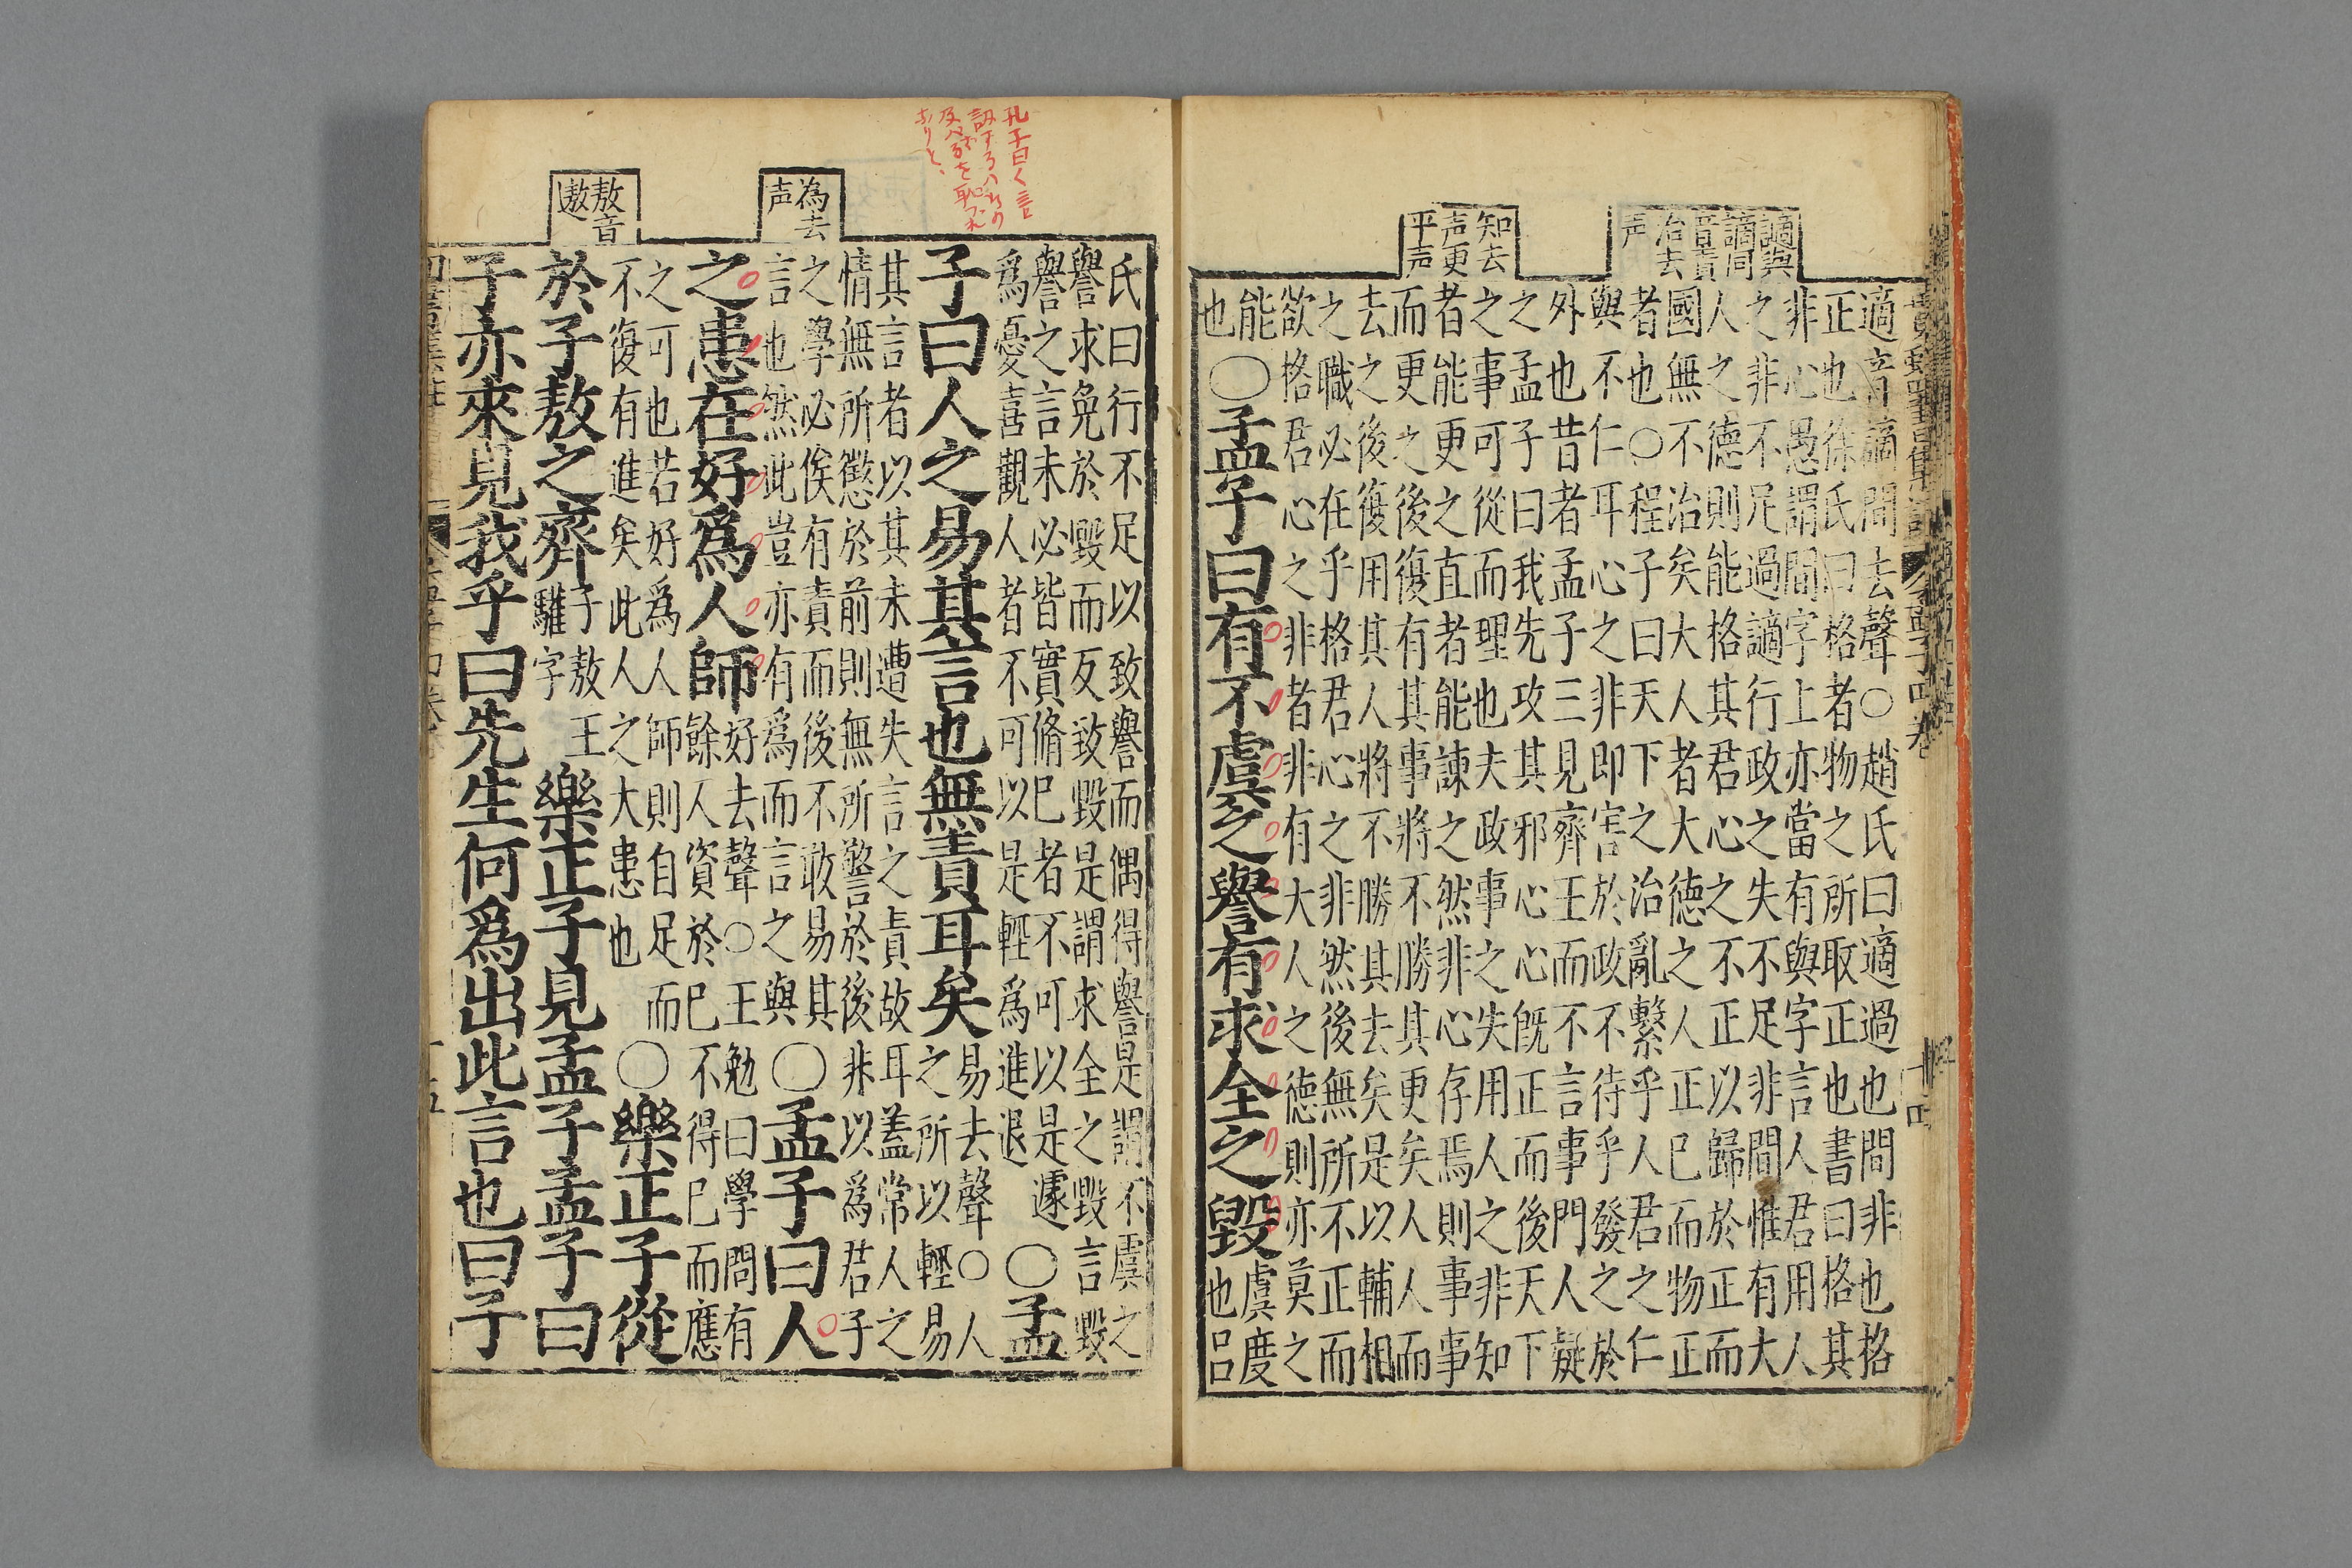 適與
謫同
音責
治去
声
知去
声更
平声
適音謫間去聲○趙氏曰適過也間非也格
正也徐氏曰格者物之所取正也書曰格其
非心愚謂間字上亦當有與字言人君用人
之非不足過謫行政之失不足非間惟有大
人之德則能格其君心之不正以歸於正而
國無不治矣大人者大德之人正己而物正
者也○程子曰天下之治亂繫乎人君之仁
與不仁耳心之非即害於政不待乎發之於
外也昔者孟子三見齊王而不言事門人疑
之孟子曰我先攻其邪心心既正而後天下
之事可從而理也夫政事之失用人之非知
者能更之直者能諫之然非心存焉則事事
而更之後復有其事將不勝其更矣人人而
去之後復用其人將不勝其去矣是以輔相
之職必在乎格君心之非然後無所不正而
欲格君心之非者非有大人之德則亦莫之
能
也
○孟子曰有不虞之譽有求全之毀
虞度
也呂
孔子曰く言
為去
声
敖音
遨
氏曰行不足以致譽而偶得譽是謂不虞之
譽求免於毀而反致毀是謂求全之毀言毀
譽之言未必皆實脩己者不可以是遽
爲憂喜觀人者不可以是輕爲進退
○孟
子曰人之易其言也無責耳矣
易去聲○人
之所以輕易
其言者以其未遭失言之責故耳蓋常人之
情無所懲於前則無所警於後非以爲君子
之學必俟有責而後不敢易其
言也然此豈亦有爲而言之與
○孟子曰人
之患在好爲人師
好去聲○王勉曰學問有
餘人資於己不得已而應
之可也若好爲人師則自足而
不復有進矣此人之大患也
○樂正子從
於子敖之齊
子敖王
驩字
樂正子見孟子孟子曰
子亦來見我乎曰先生何爲出此言也曰子